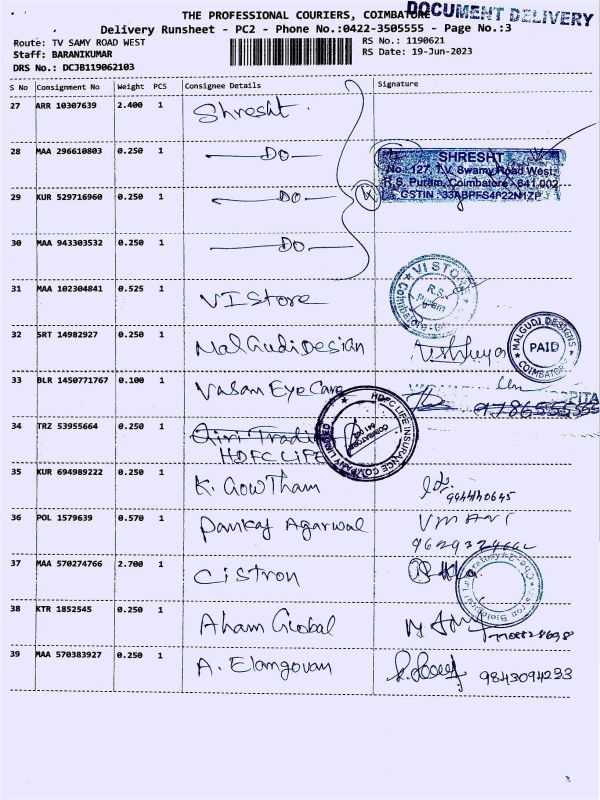 DOCUMENT DELIVERY
THE PROFESSIONAL COURIERS, COIMBATORE
Delivery Runsheet - PC2 - Phone No.:0422-3505555 - Page No.:3
Route: TV SAMY ROAD WEST
RS No.: 1190621
Staff: BARANIKUMAR
RS Date: 19-Jun-2023
DRS No.: DCJB119062103
S No Consignment No Weight PCS Consignee Details Signature
27 ARR 10307639 2.400 1 Shresht.
28 MAA 296610803 0.250 1 —DO—
SHRESHT
No: 127, T.V. Swamy Road West,
R.S. Puram, Coimbatore - 641 002
29 KUR 529716960 0.250 1 —DO—
GSTIN : 33ABPFS4622N1ZP
30 MAA 943303532 0.250 1 —DO—
31 MAA 102304841 0.525 1 VI Store
VI STORE
R.S.
Puram
32 SRT 14982927 0.250 1 MalGudi Design
MALGUDI DESIGNS
PAID
COIMBATORE
33 BLR 1450771767 0.100 1 Vasan Eye Care
9786555565
34 TRZ 53955664 0.250 1 Giri Trading
HDFC LIFE
HDFC LIFE INSURANCE COMPANY LIMITED
COIMBATORE
641 002
35 KUR 694989222 0.250 1 K. GowTham
36 POL 1579639 0.570 1 Pankaj Agarwal VMANI
37 MAA 570274766 2.700 1 Cistron
38 KTR 1852545 0.250 1 Aham Global
39 MAA 570383927 0.250 1 A. Elamgovan 9843094293